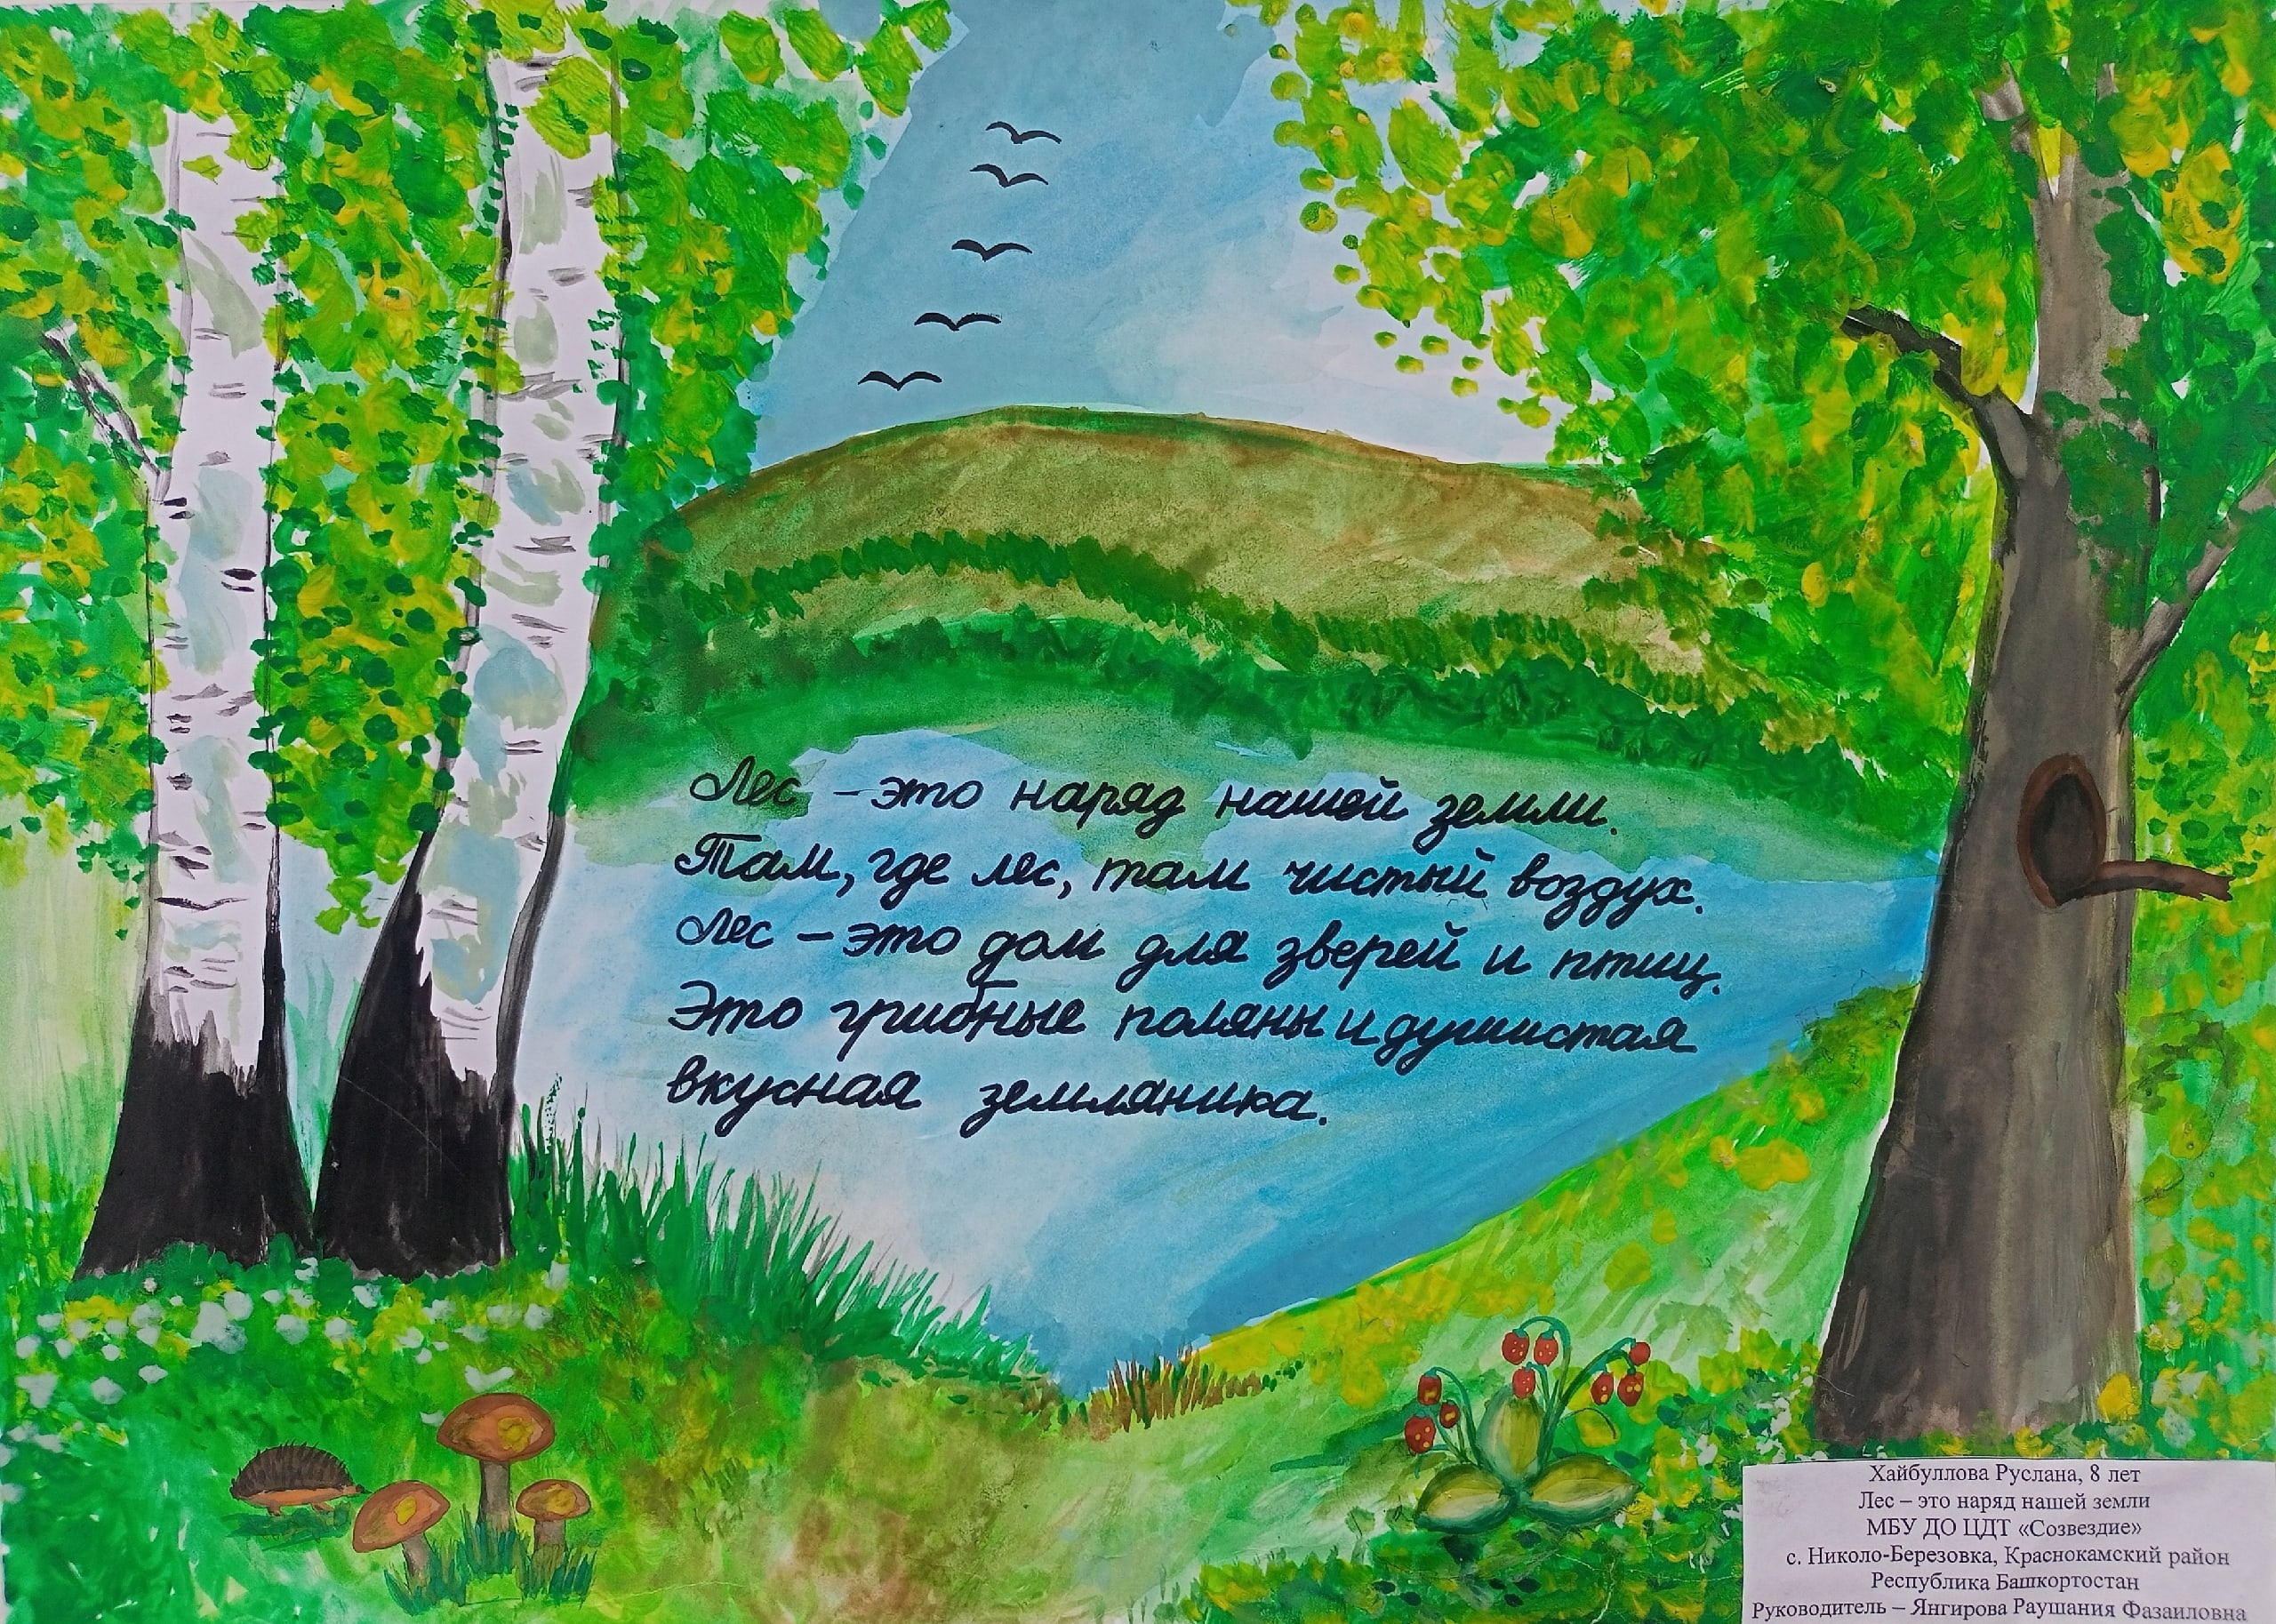 Лес – это наряд нашей земли.
Там, где лес, там чистый воздух.
Лес – это дом для зверей и птиц.
Это грибные поляны и душистая
вкусная земляника.
Хайбуллова Руслана, 8 лет
Лес – это наряд нашей земли
МБУ ДО ЦДТ «Созвездие»
с. Николо-Березовка, Краснокамский район
Республика Башкортостан
Руководитель – Янгирова Раушания Фазаиловна